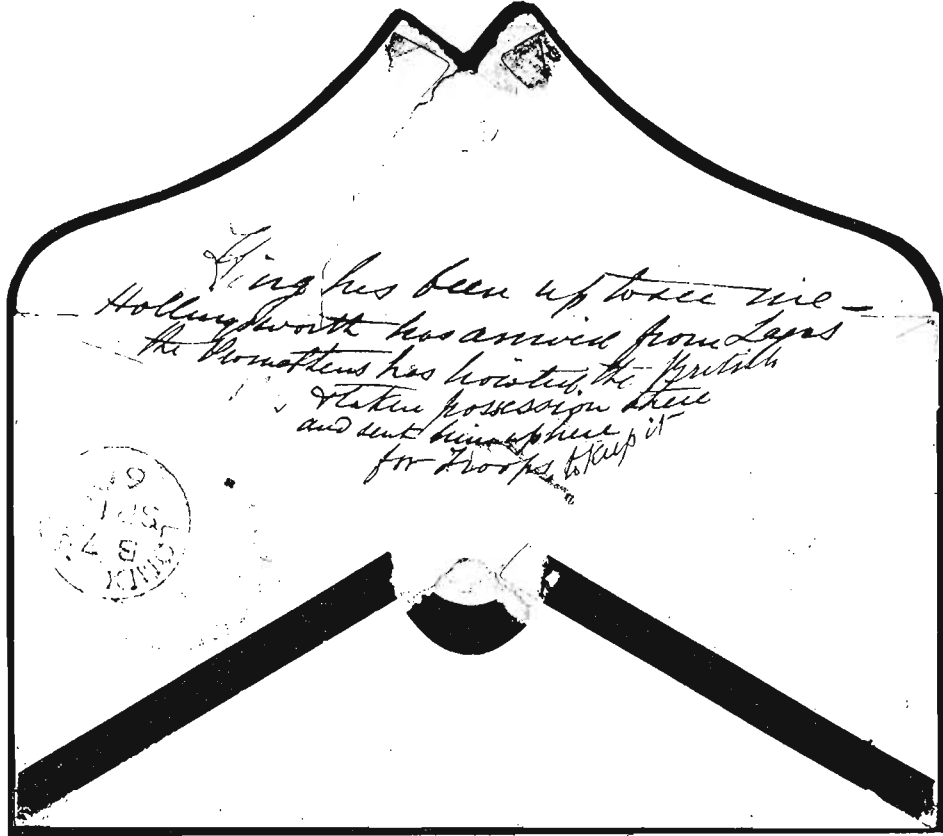 King has been up to see me —
Hollingsworth has arrived from Lagos
the Prometheus has hoisted the British
& taken possession there
and sent him up here
for Troops to keep it
SP
B 7